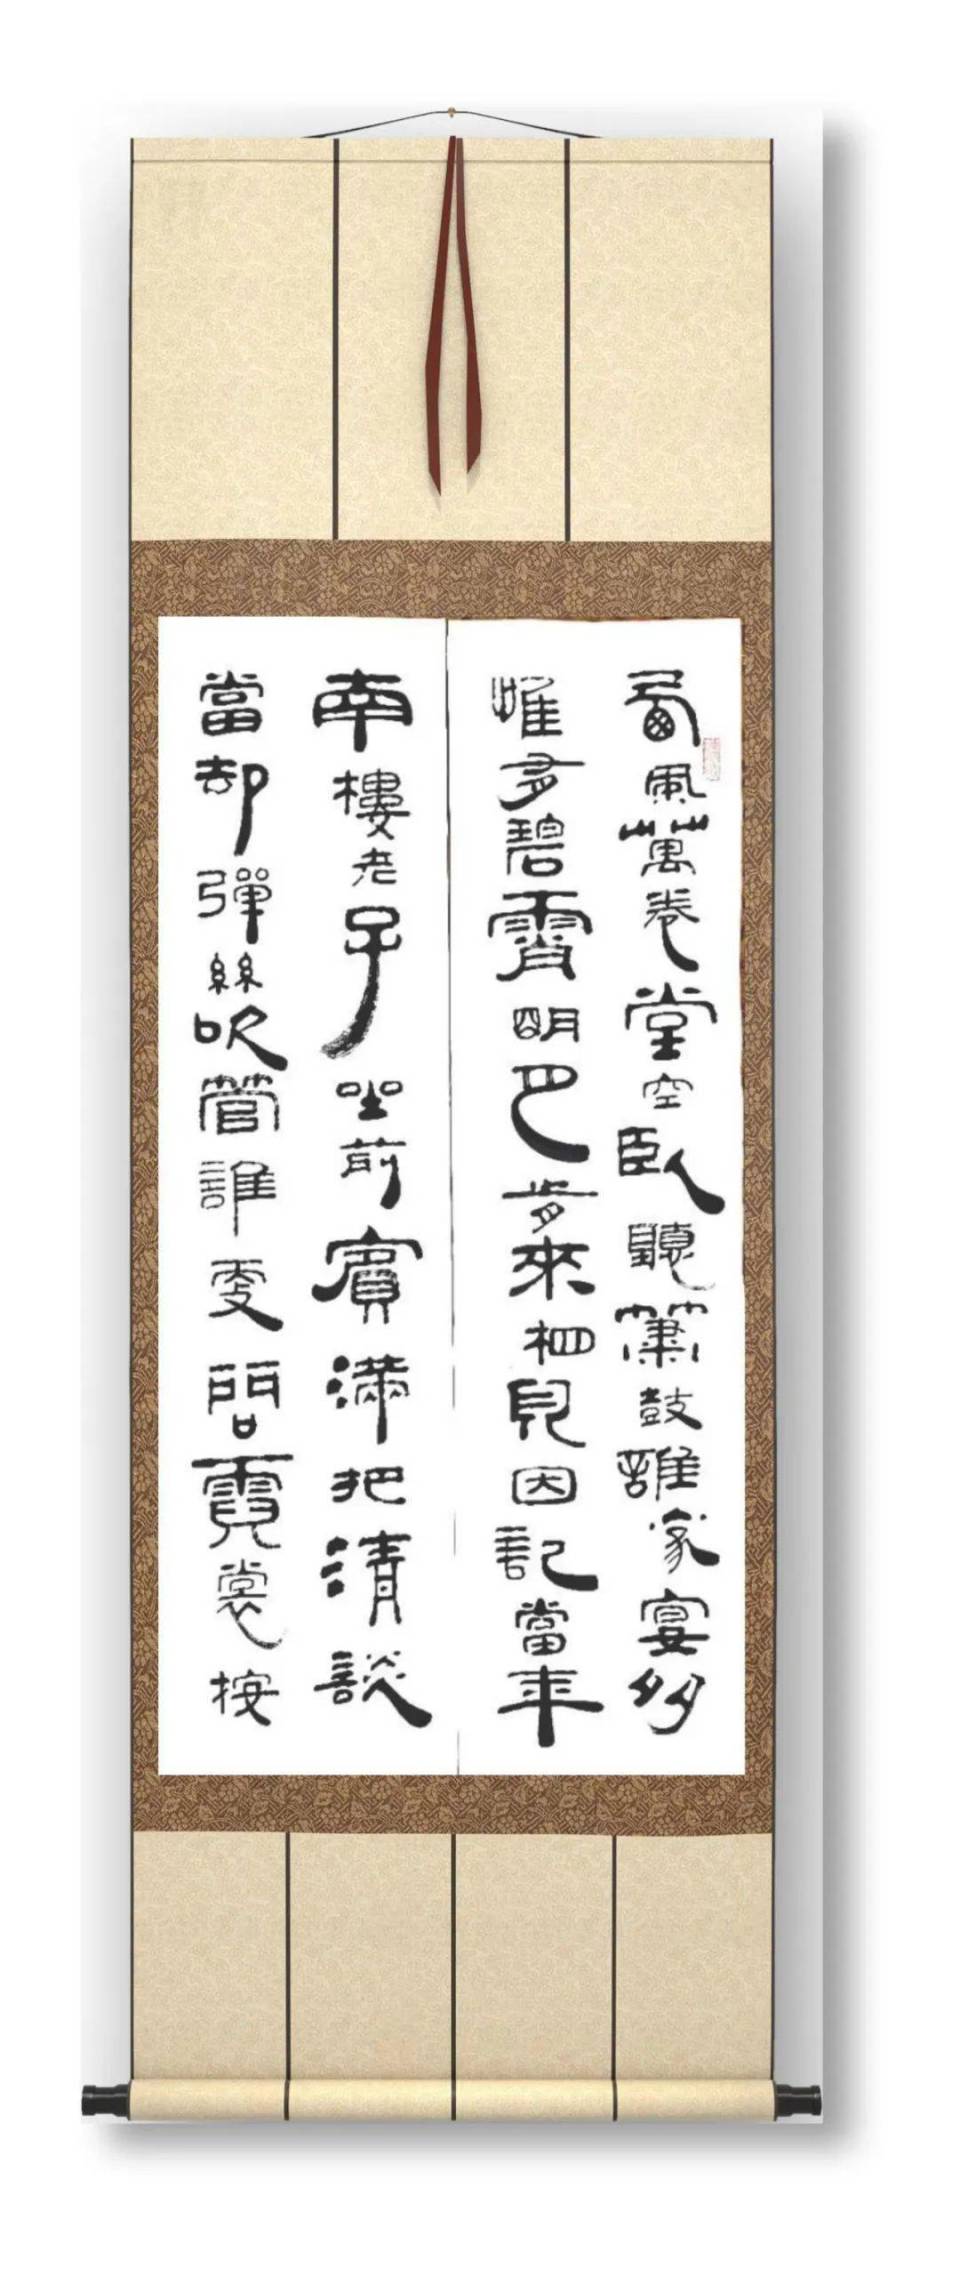 西風萬卷堂空臥聽簫鼓誰家宴多
惟有碧霄明月肯來相見因記當年
南樓老子坐前賓滿把清談
當却彈絲吹管誰更問霓裳按